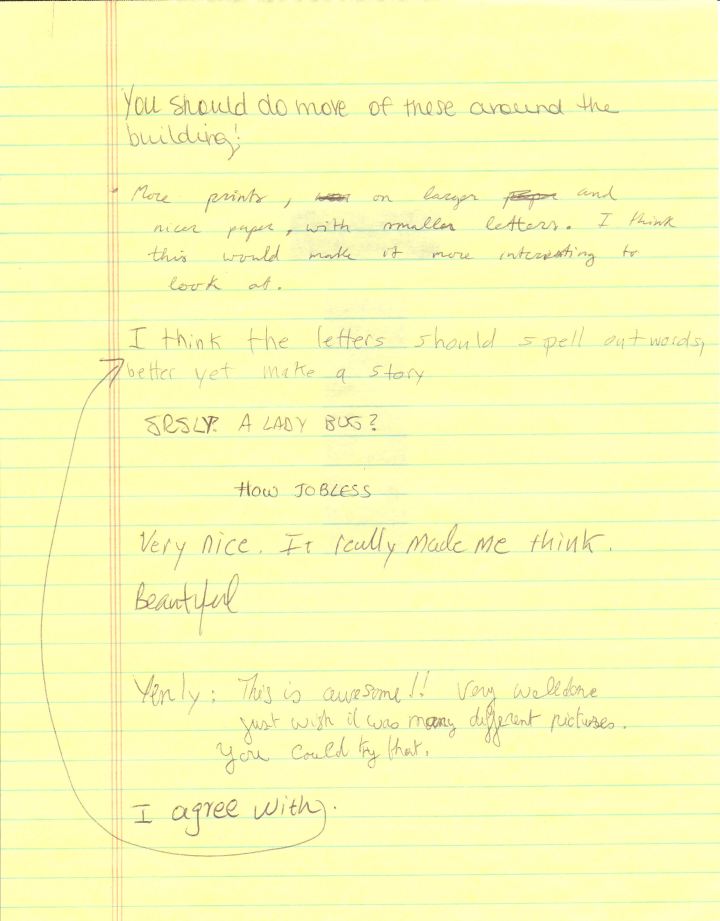 You should do more of these around the
building!
More prints, on larger and
nicer paper, with smaller letters. I think
this would make it more interesting to
look at.
I think the letters should spell out words,
better yet make a story
SRSLY? A LADY BUG?
HOW JOBLESS
Very nice. It really made me think.
Beautiful
Yenly: This is awesome!! Very welldone
just wish it was many different pictures.
You could try that.
I agree with.